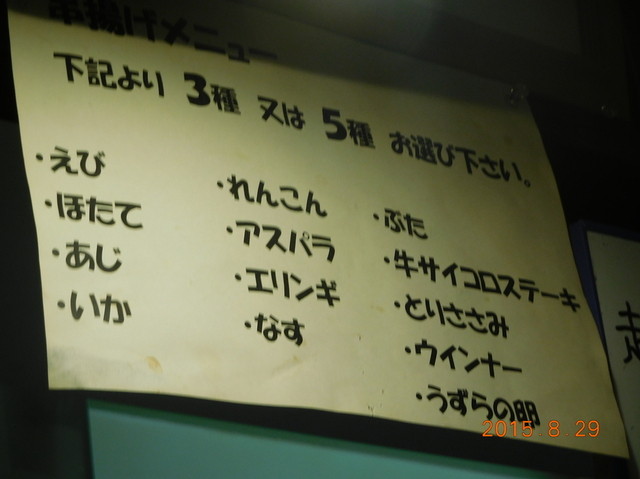 串揚げメニュー
下記より 3種 又は 5種 お選び下さい。
・えび
・ほたて
・あじ
・いか
・れんこん
・アスパラ
・エリンギ
・なす
・ぶた
・牛サイコロステーキ
・とりささみ
・ウインナー
・うずらの卵
2015 8.29